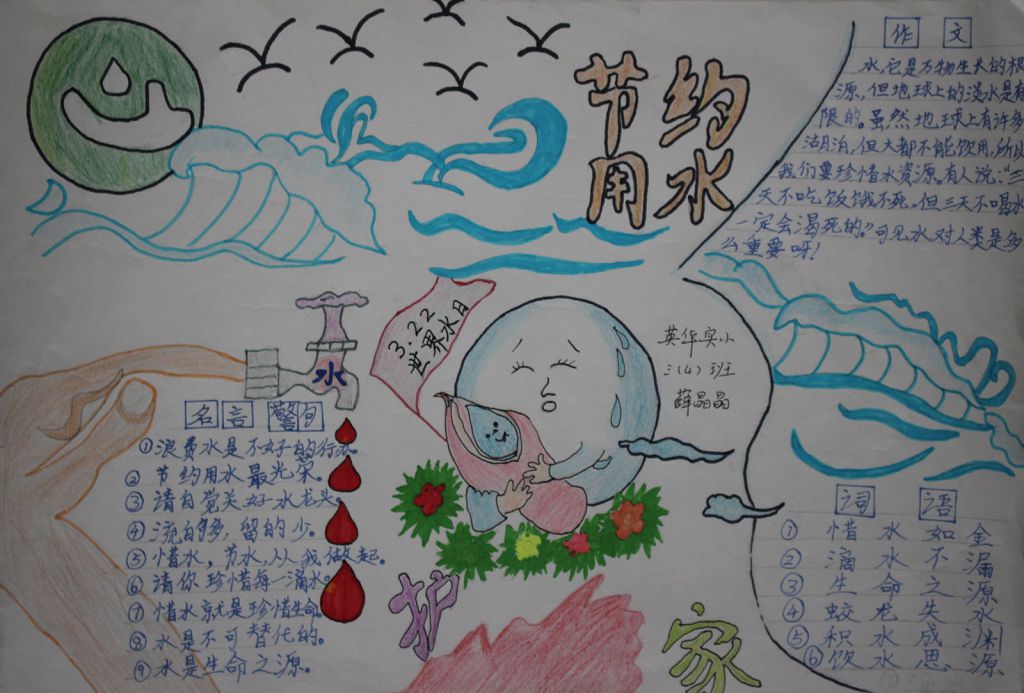 节约
用水
作文
水,它是万物生长的根
源,但地球上的淡水是有
限的。虽然地球上有许多
湖泊,但大都不能饮用,所以
我们要珍惜水资源。有人说:“三
天不吃饭饿不死,但三天不喝水
一定会渴死的。”可见水对人类是多
么重要呀!
3.22
世界水日
英华实小
三(4)班
薛晶晶
水
名言警句
①浪费水是不好的行为。
②节约用水最光荣。
③请自觉关好水龙头。
④流的多,留的少。
⑤惜水,节水,从我做起。
⑥请你珍惜每一滴水。
⑦惜水就是珍惜生命
⑧水是不可替代的。
⑨水是生命之源。
护
家
词语
①惜水如金
②滴水不漏
③生命之源
④蛟龙失水
⑤积水成渊
⑥饮水思源